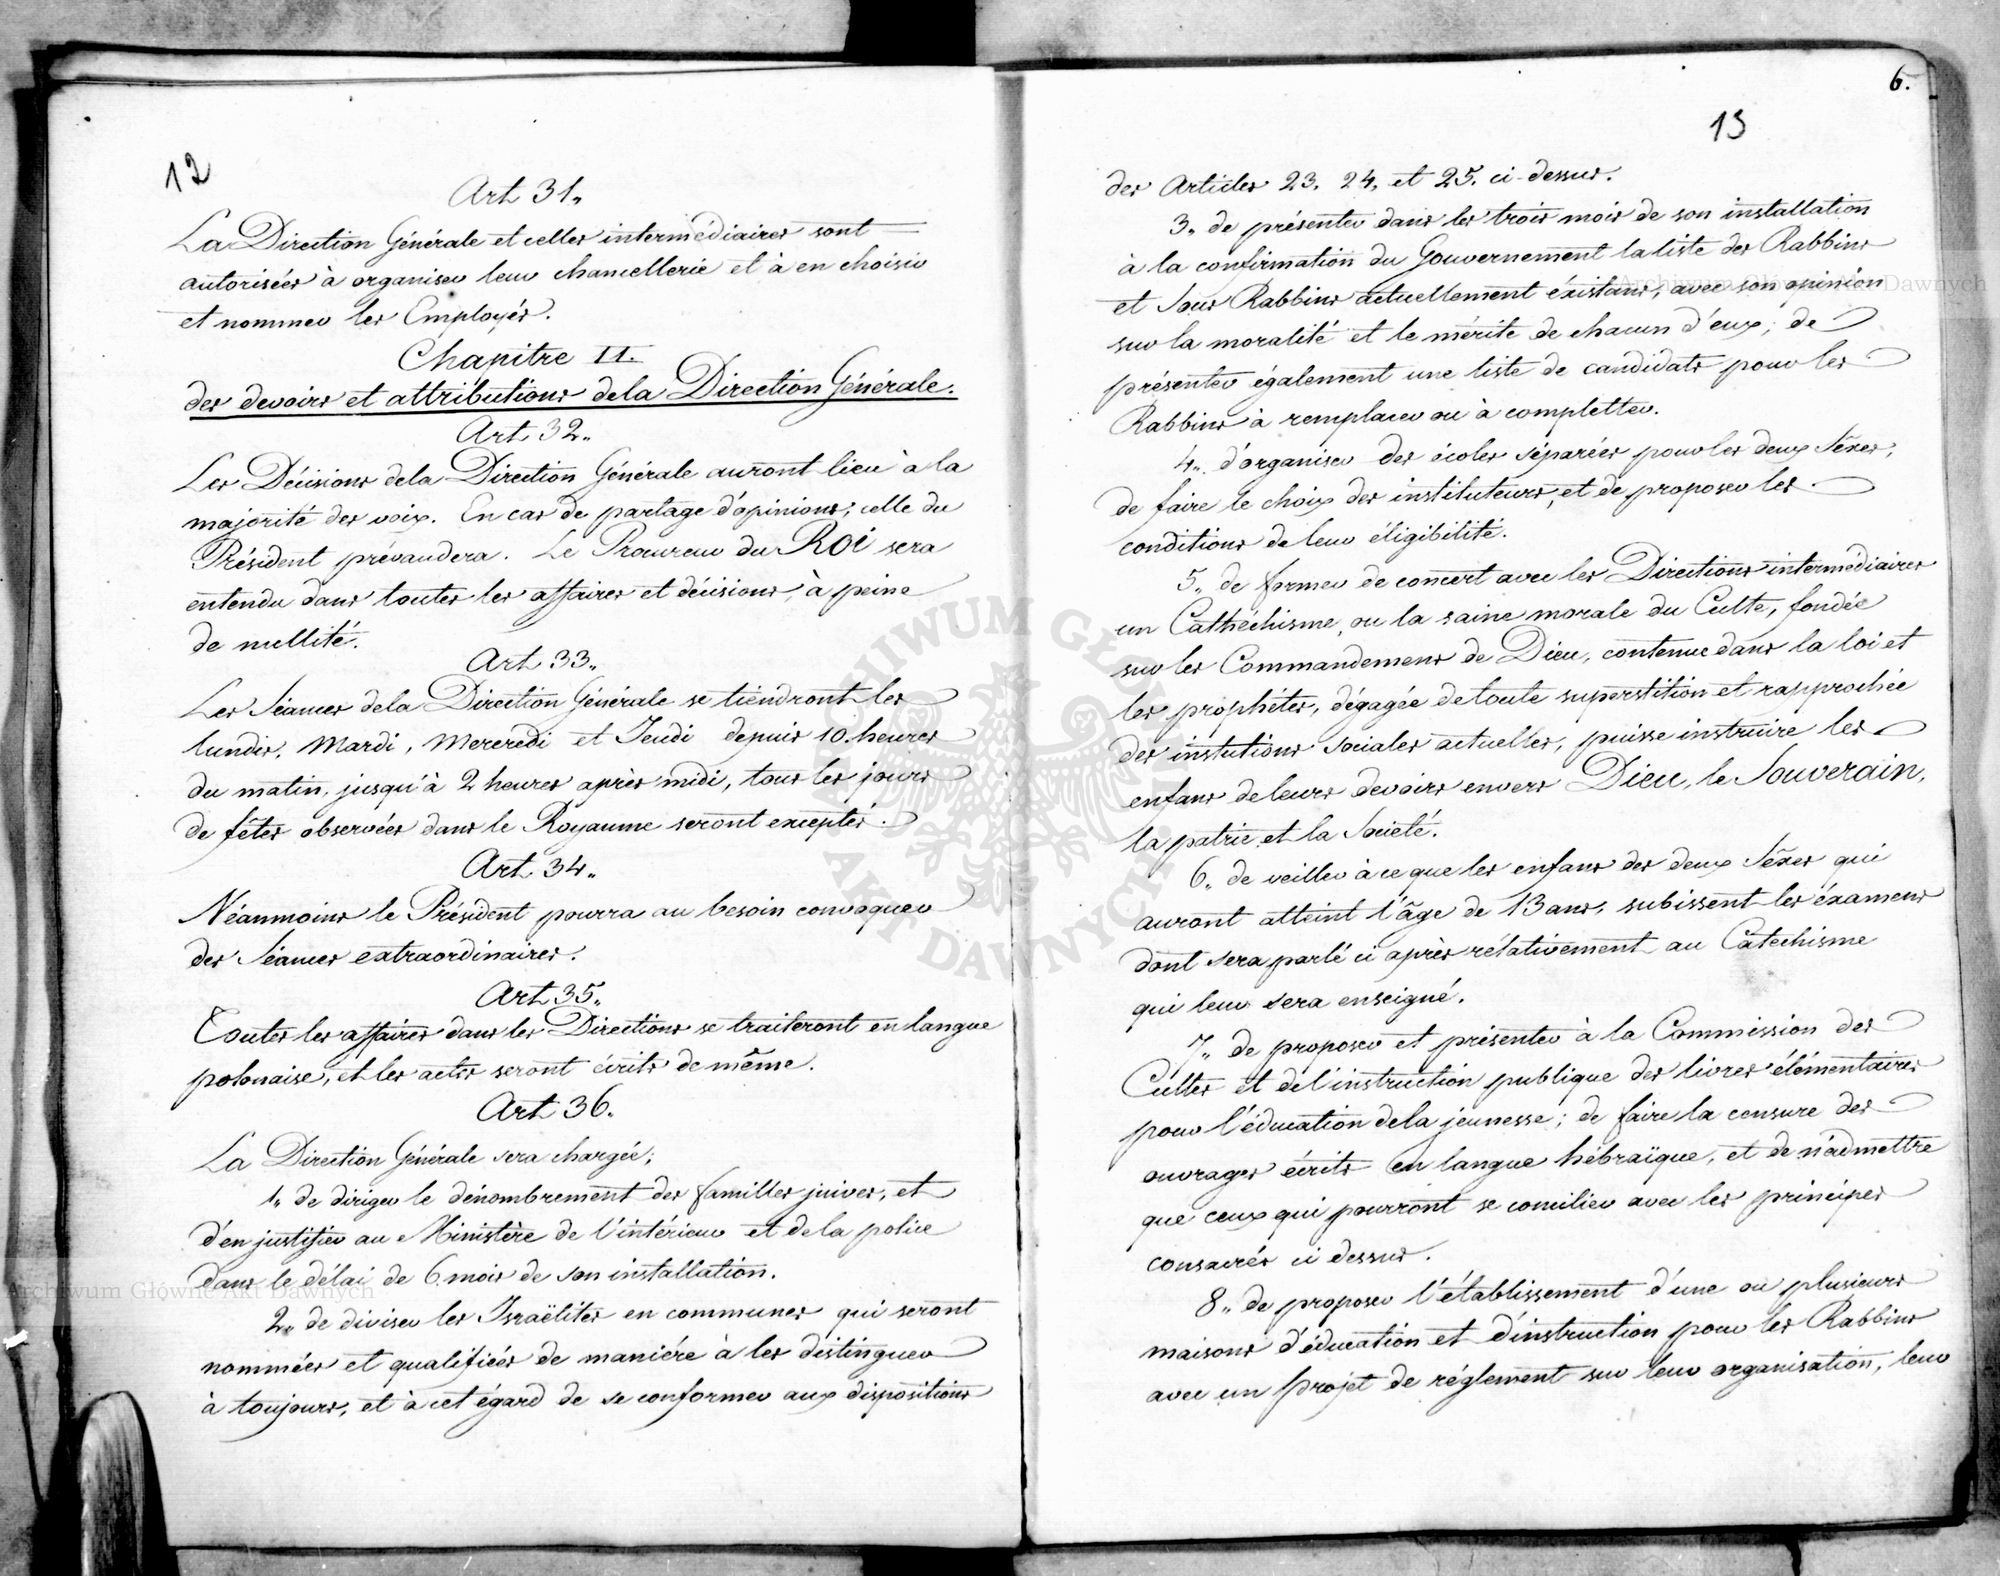 12
Art 31.
La Direction Générale et celles intermédiaires sont
autorisées à organiser leur chancellerie et à en choisir
et nommer les Employés.
Chapitre II.
des devoirs et attributions de la Direction Générale.
Art 32.
Les Décisions de la Direction Générale auront lieu à la
majorité des voix. En cas de partage d'opinions, celle du
Président prévaudera. Le Procureur du ROI sera
entendu dans toutes les affaires et décisions, à peine
de nullité.
Art 33.
Les Séances de la Direction Générale se tiendront les
lundis, Mardi, Mercredi et Jeudi depuis 10. heures
du matin, jusqu'à 2 heures après midi, tous les jours
de fêtes observées dans le Royaume seront exceptés.
Art. 34.
Néanmoins le Président pourra au besoin convoquer
des Séances extraordinaires.
Art 35.
Toutes les affaires dans les Directions se traiteront en langue
polonaise, et les actes seront écrits de même.
Art 36.
La Direction Générale sera chargée;
1. de diriger le dénombrement des familles juives, et
d'en justifier au Ministère de l'intérieur et de la police
dans le délai de 6. mois de son installation.
2. de diviser les Israëlites en communes qui seront
nommées et qualifiées de maniére à les distinguer
à toujours, et à cet égard de se conformer aux dispositions
6.
13
des Articles 23. 24. et 25. ci-dessus.
3. de présenter dans les trois mois de son installation
à la confirmation du Gouvernement la liste des Rabbins
et Sous Rabbins actuellement éxistans, avec son opinion
sur la moralité et le mérite de chacun d'eux; de
présenter également une liste de candidats pour les
Rabbins à remplacer ou à completter.
4. d'organiser des écoles séparées pour les deux Séxes,
de faire le choix des instituteurs, et de proposer les
conditions de leur éligibilité.
5. de former de concert avec les Directions intermédiaires
un Cathéchisme, ou la saine morale du Culte, fondée
sur les Commandemens de Dieu, contenue dans la loi et
les prophétes, dégagée de toute superstition et rapprochée
des instutions sociales actuelles, puisse instruire les
enfans de leurs devoirs envers Dieu, le Souverain,
la patrie et la Societé.
6. de veiller à ce que les enfans des deux Séxes qui
auront atteint l'âge de 13 ans, subissent les éxamens
dont sera parlé ci après rélativement au Catechisme
qui leur sera enseigné.
7. de proposer et présenter à la Commission des
Cultes et de l'instruction publique des livres élémentaires
pour l'éducation de la jeunesse; de faire la censure des
ouvrages écrits en langue hébraïque, et de n'admettre
que ceux qui pourront se concilier avec les principes
consacrés ci dessus.
8. de proposer l'établissement d'une ou plusieurs
maisons d'éducation et d'instruction pour les Rabbins
avec un projet de réglement sur leur organisation, leur
Archiwum Główne Akt Dawnych
Archiwum Główne Akt Dawnych
ARCHIWUM GŁÓWNE AKT DAWNYCH